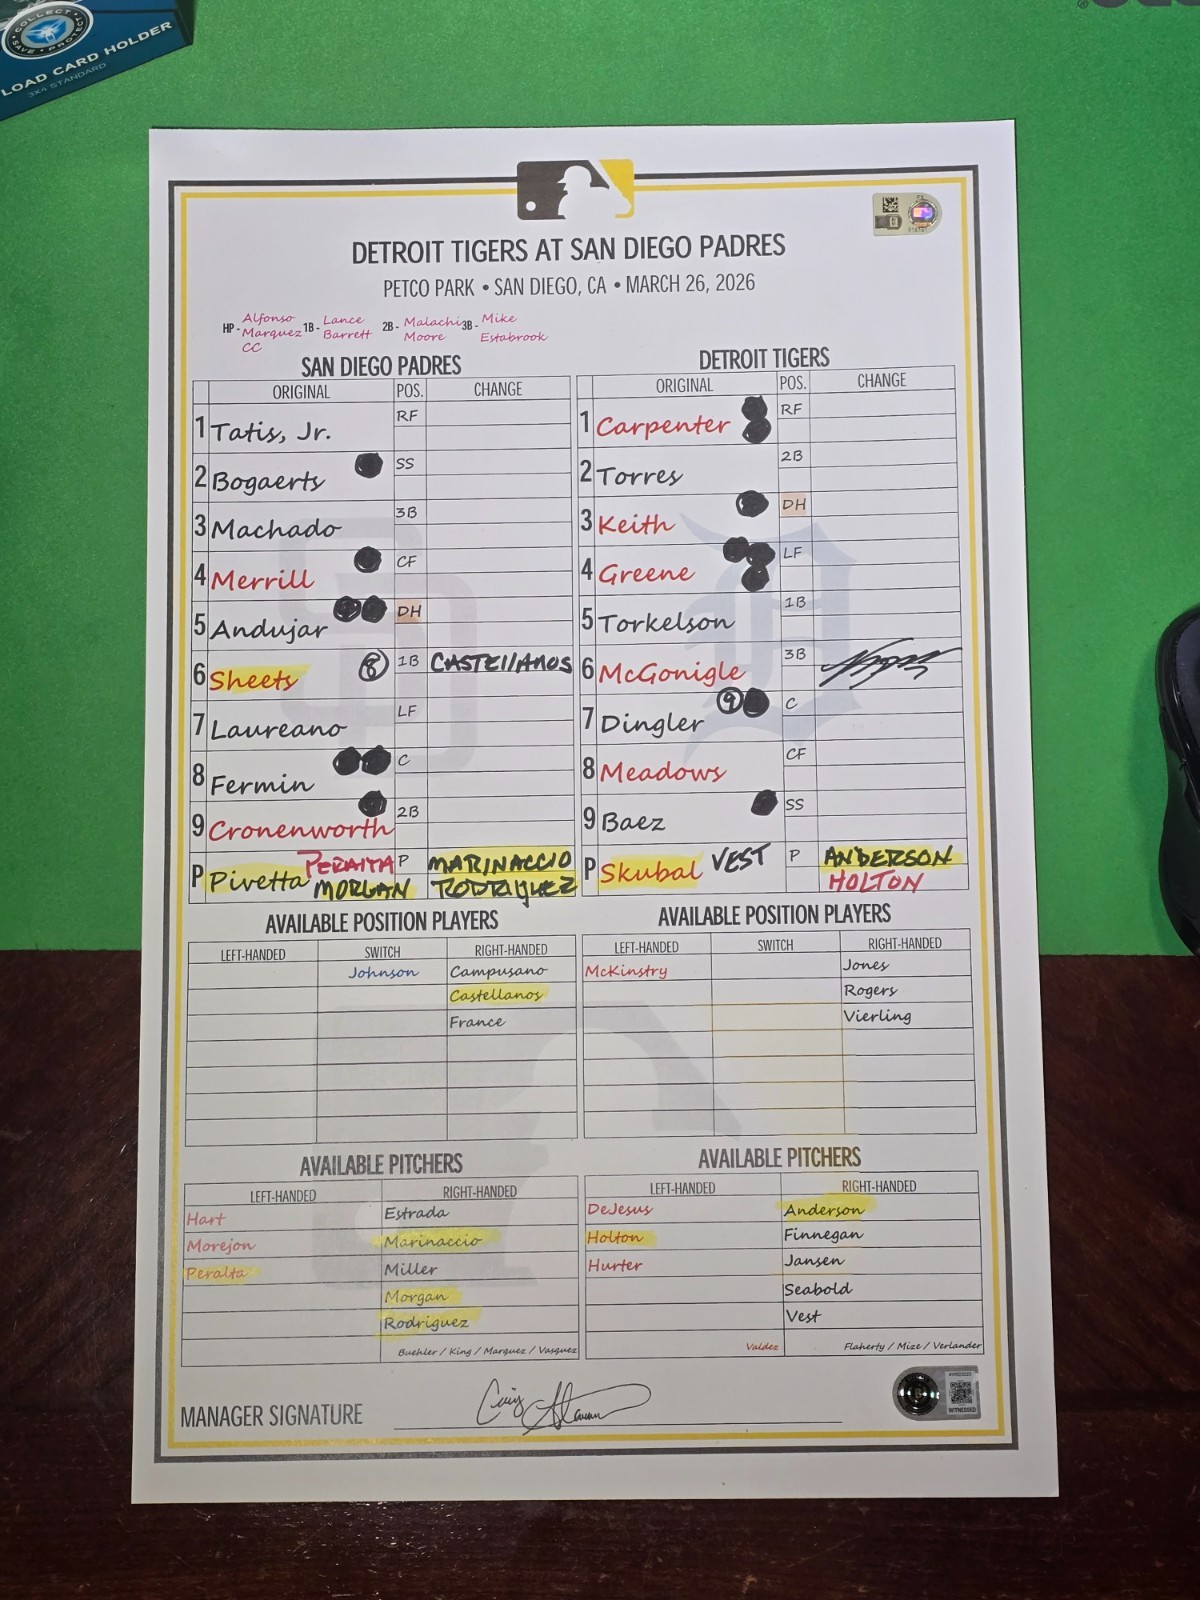 COLLECT SAVE PROTECT
LOAD CARD HOLDER
3X4 STANDARD
DETROIT TIGERS AT SAN DIEGO PADRES
PETCO PARK • SAN DIEGO, CA • MARCH 26, 2026
HP - Alfonso Marquez CC 1B - Lance Barrett 2B - Malachi Moore 3B - Mike Estabrook
SAN DIEGO PADRES
ORIGINAL POS. CHANGE
1 Tatis, Jr. RF
2 Bogaerts SS
3 Machado 3B
4 Merrill CF
5 Andujar DH
6 Sheets 8 1B CASTEllANOS
7 Laureano LF
8 Fermin C
9 Cronenworth 2B
P Pivetta PERALTA P MARINACCIO
MORGAN RODRIGUEZ
DETROIT TIGERS
ORIGINAL POS. CHANGE
1 Carpenter RF
2 Torres 2B
3 Keith DH
4 Greene LF
5 Torkelson 1B
6 McGonigle 3B
7 Dingler 9 C
8 Meadows CF
9 Baez SS
P Skubal VEST P ANDERSON
HOLTON
AVAILABLE POSITION PLAYERS
LEFT-HANDED SWITCH RIGHT-HANDED
Johnson Campusano
Castellanos
France
AVAILABLE POSITION PLAYERS
LEFT-HANDED SWITCH RIGHT-HANDED
McKinstry Jones
Rogers
Vierling
AVAILABLE PITCHERS
LEFT-HANDED RIGHT-HANDED
Hart Estrada
Morejon Marinaccio
Peralta Miller
Morgan
Rodriguez
Buehler / King / Marquez / Vasquez
AVAILABLE PITCHERS
LEFT-HANDED RIGHT-HANDED
DeJesus Anderson
Holton Finnegan
Hurter Jansen
Seabold
Vest
Valdez Flaherty / Mize / Verlander
MANAGER SIGNATURE Craig Stammen
WITNESSED